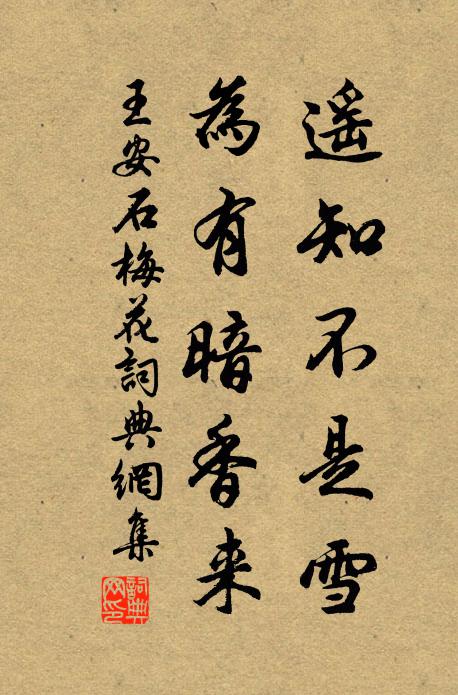 遥知不是雪
為有暗香来
王安石梅花詞典網集
詞典
網印